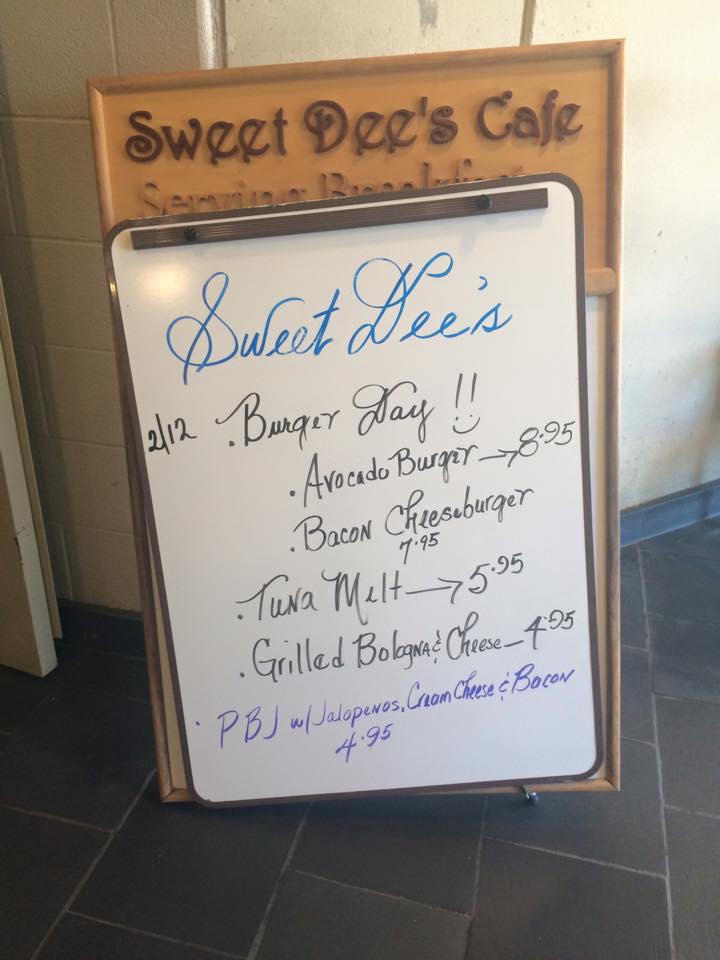 Sweet Dee's Cafe
Serving Breakfast
Sweet Dee's
2/12 . Burger Day !!
. Avocado Burger → 8.95
. Bacon Cheeseburger
7.95
. Tuna Melt → 5.95
. Grilled Bologna & Cheese – 4.95
. PBJ w/ Jalapenos, Cream Cheese & Bacon
4.95